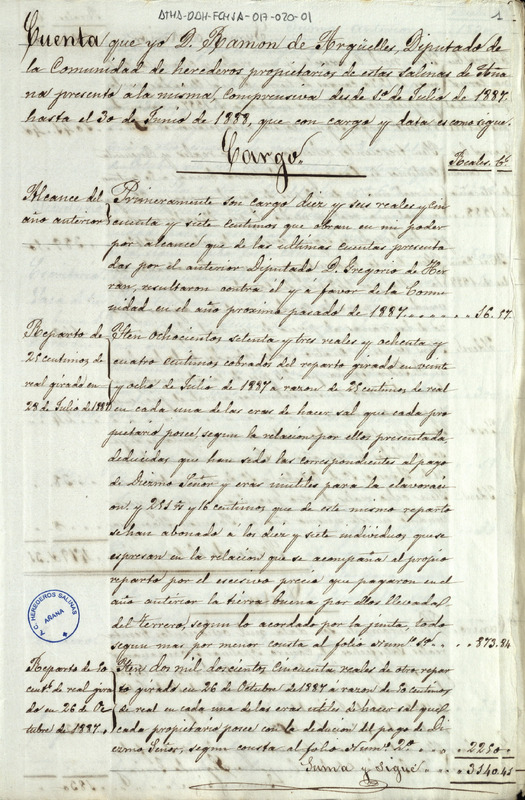 DTHA-DDH-FCHSA-017-020-01
1
Cuenta que yo D. Ramon de Argüelles, Diputado de
la Comunidad de herederos propietarios de estas Salinas de Aña
na presento á la misma, comprensiva desde 1º de Julio de 1887
hasta el 30 de Junio de 1888, que con cargo y data es como sigue.
Cargo.
Reales. Cs.
Alcance del
año anterior
Primeramente son cargo diez y seis reales y cin
cuenta y siete centimos que obran en mi poder
por alcance que de las ultimas cuentas presenta
das por el anterior Diputado D. Gregorio de Her
ran, resultaron contra el y á favor de la Comu
nidad en el año proximo pasado de 1887
16.57.
Reparto de
25 centimos de
real girado en
28 de Julio de 1887
Iten ochocientos setenta y tres reales y ochenta y
cuatro centimos cobrados del reparto girado en veinte
y ocho de Julio de 1887 á razon de 25 centimos de real
en cada una de las eras de hacer sal que cada pro
pietario posee, segun la relacion por ellos presentada
deducidas que han sido las correspondientes al pago
de Diezmo Señor y eras inutiles para la elavoraci
on y 251 y 16 centimos que de este mismo reparto
se han abonado a los diez y siete individuos que se
espresan en la relacion que se acompaña al propio
reparto por el escesivo precio que pagaron en el
año anterior la tierra buena por ellos llevada
del terrero, segun lo acordado por la junta, todo
segun mas por menor consta al folio Numº 1º
873.84
A.C. HEREDEROS SALINAS
AÑANA
Reparto de 50
centº de real gira
do en 26 de Oc
tubre de 1887.
Iten dos mil doscientos cincuenta reales de otro repar
to girado en 26 de Octubre de 1887 á razon de 50 centimos
de real en cada una de las eras utiles de hacer sal que
cada propietario posee con la deducion del pago de Di
ezmo Señor, segun consta al folio Numº 2º
2250.
Suma y sigue
3140.41